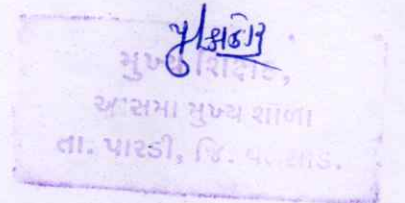 મુખ્ય શિક્ષક,
આસમા મુખ્ય શાળા
તા. પારડી, જિ. વલસાડ.